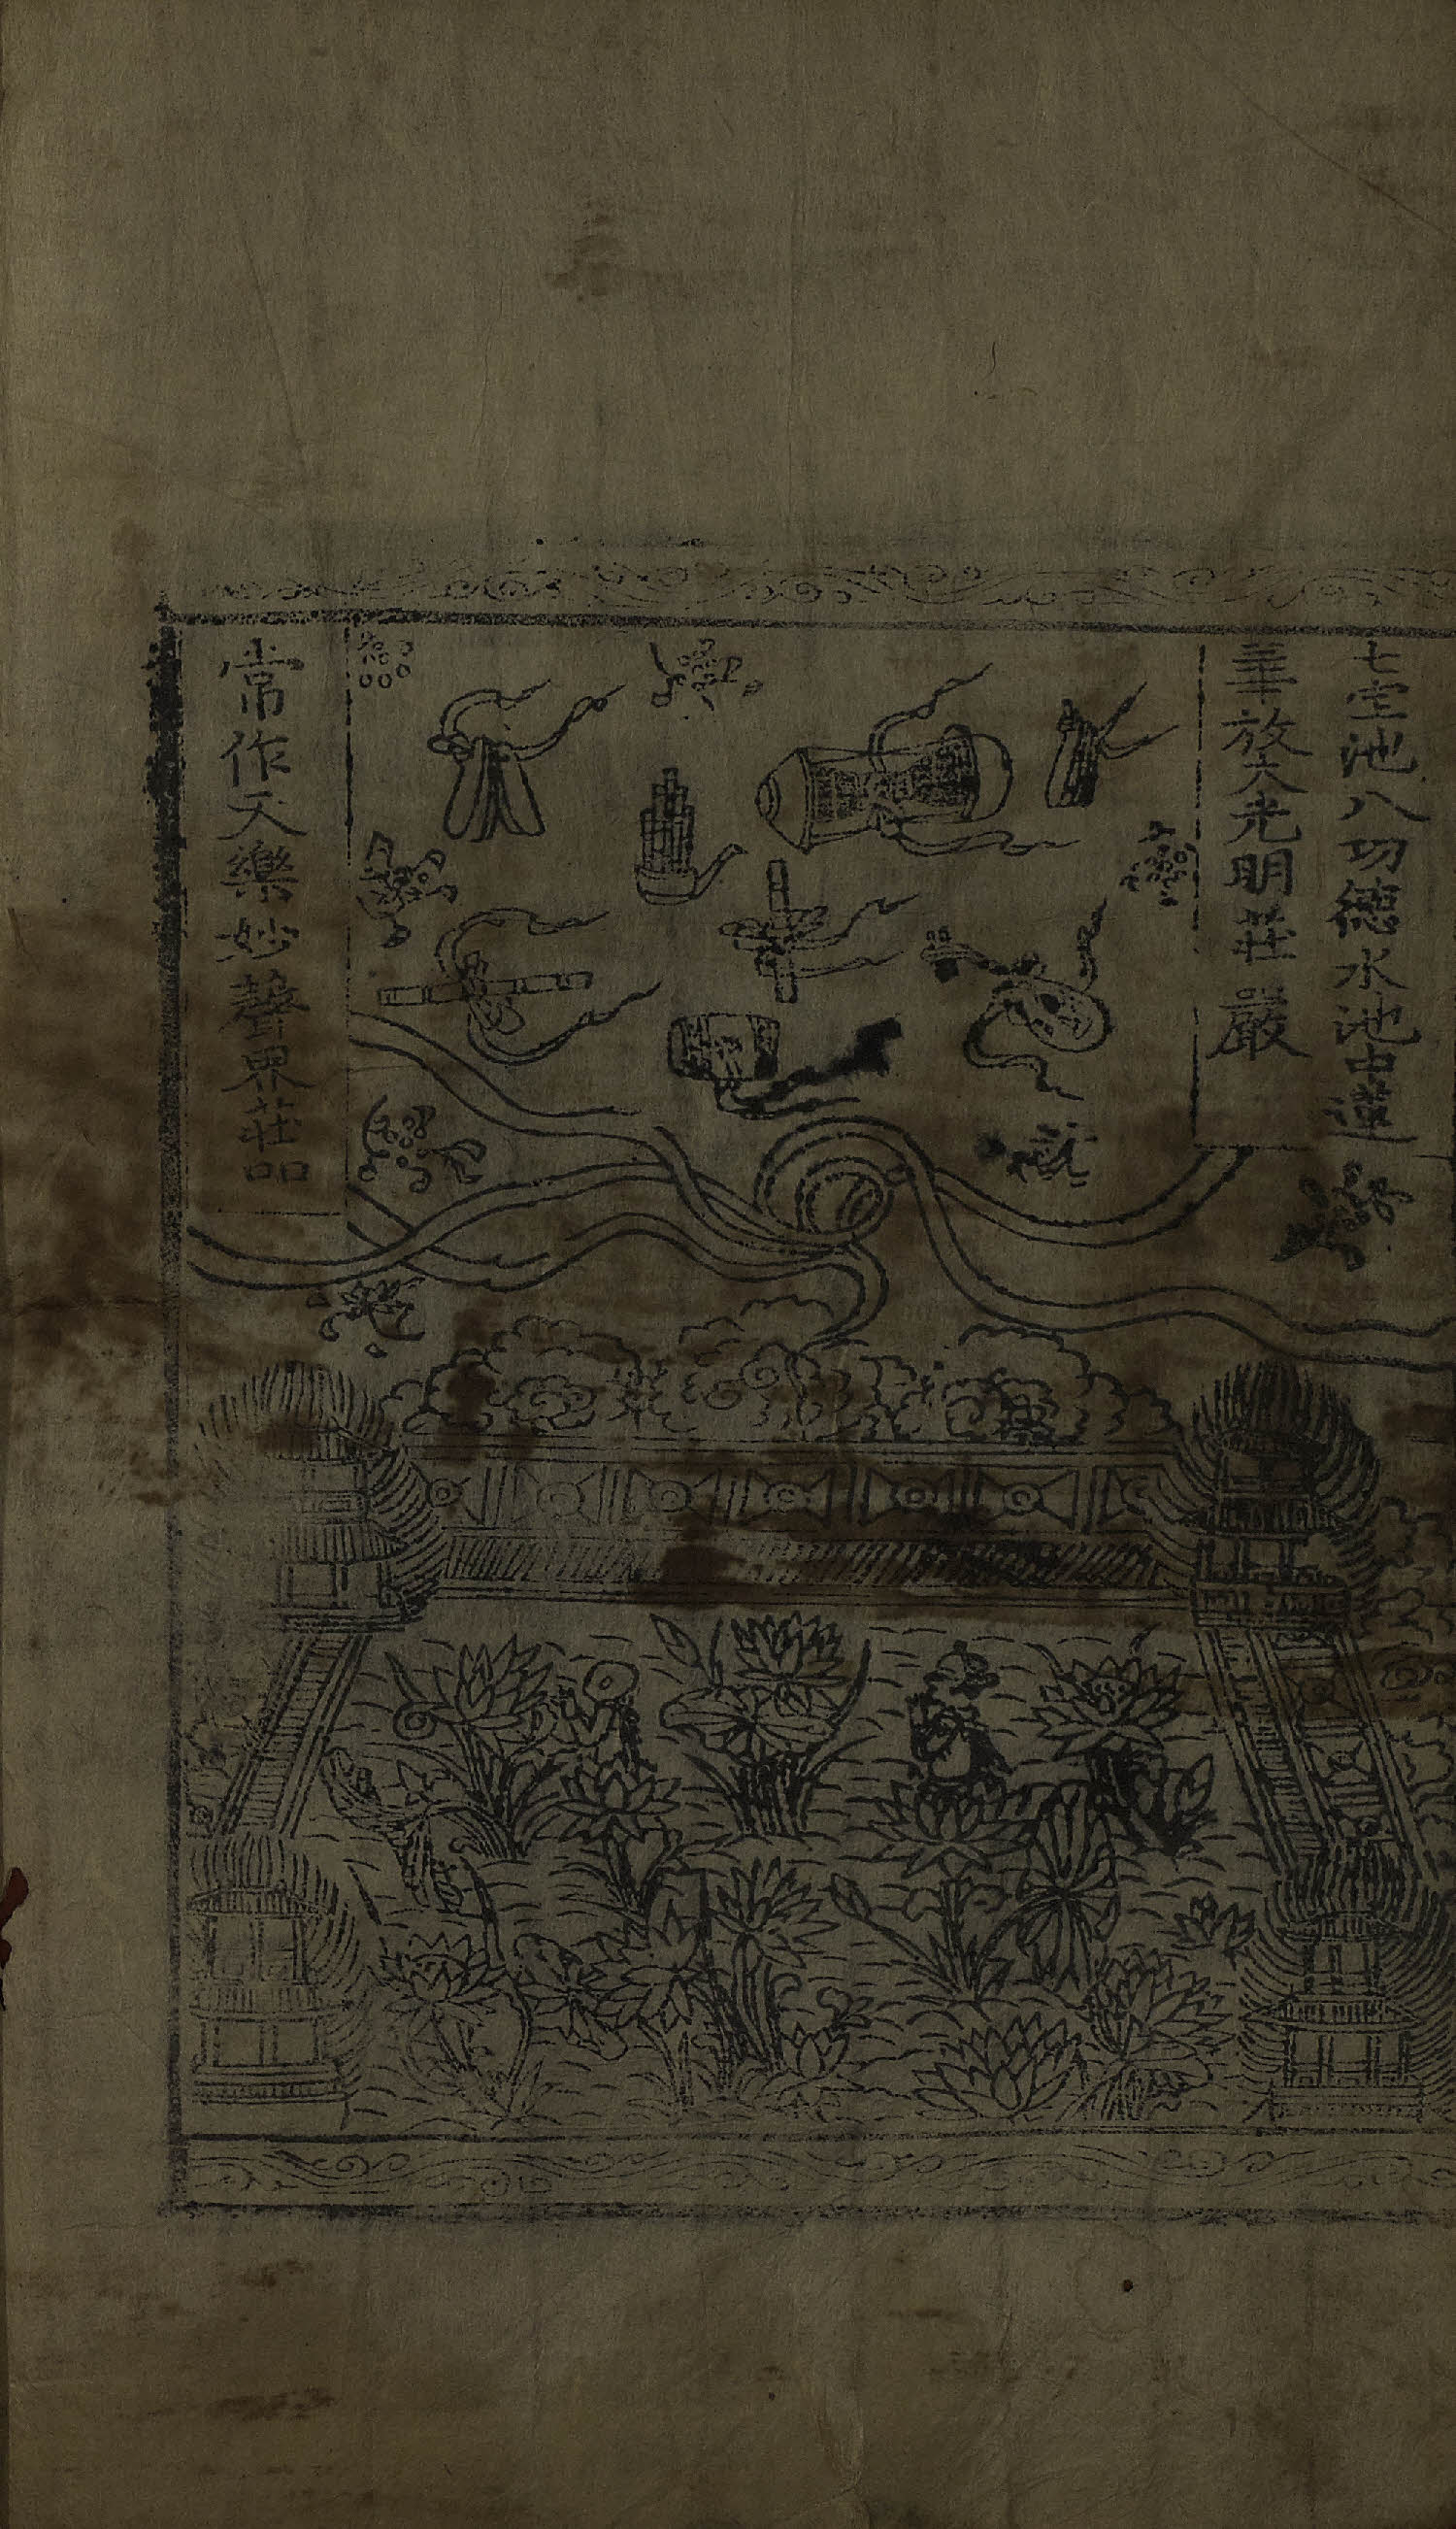 七宝池八功德水池中蓮
華放大光明莊嚴
常作天樂妙聲界莊品